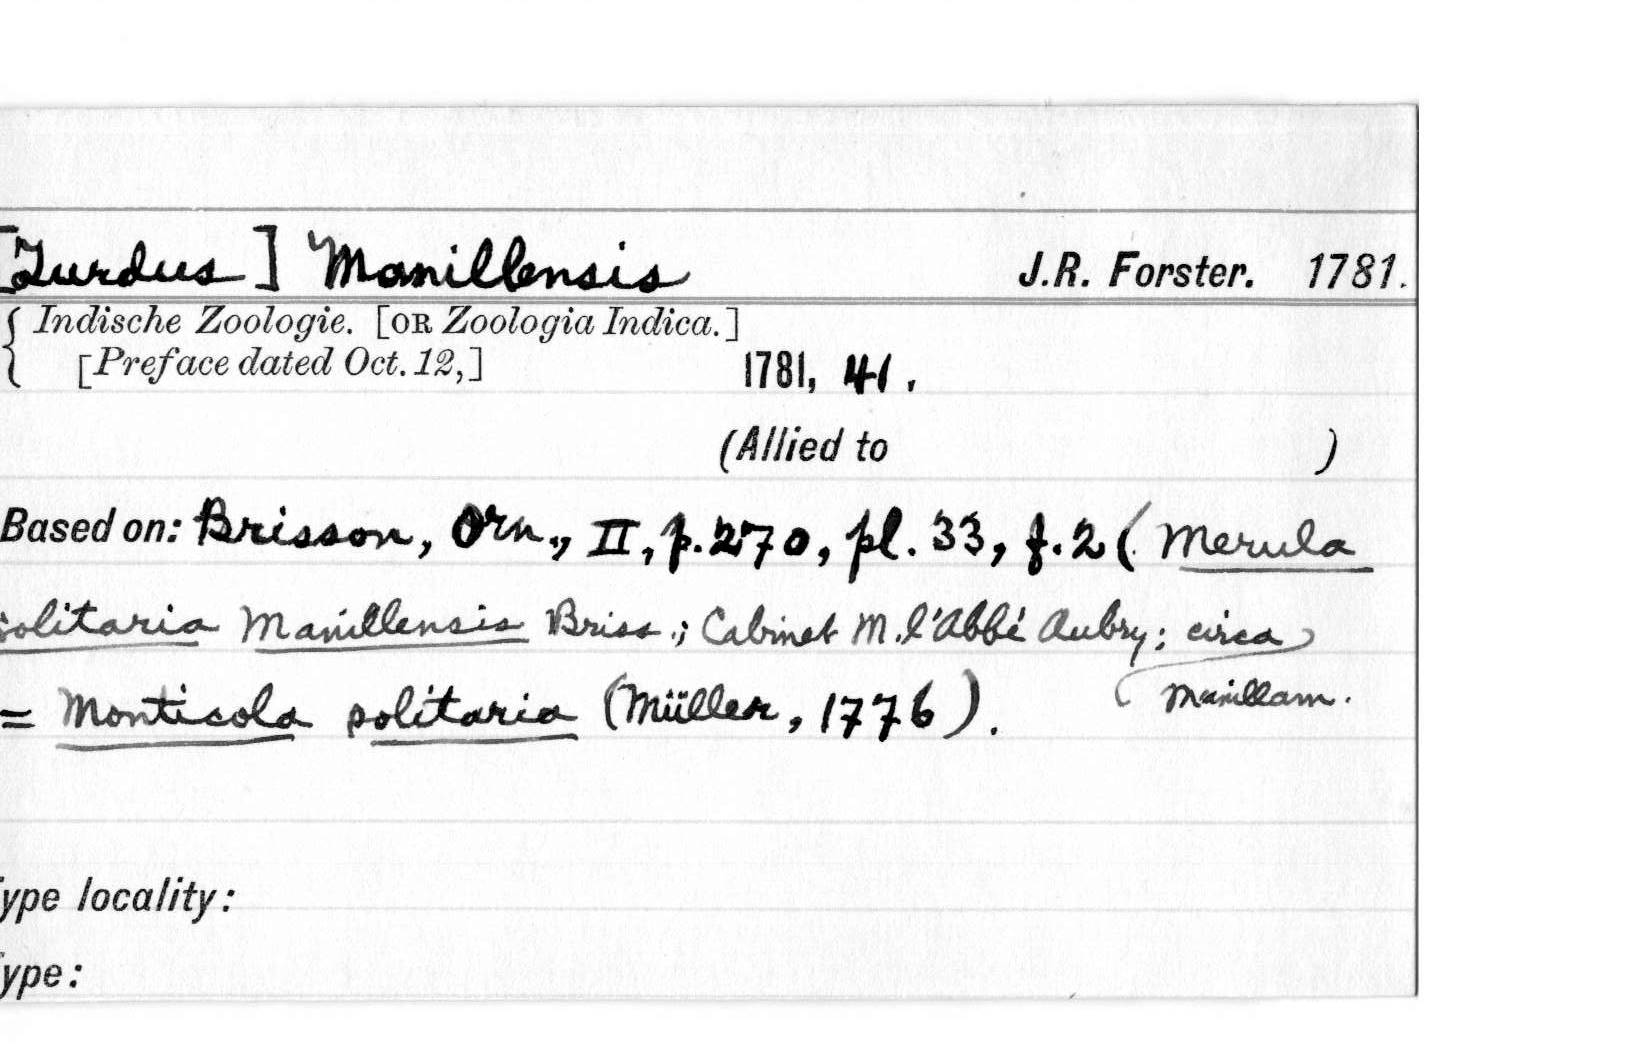 [Turdus] Manillensis J.R. Forster. 1781.
{ Indische Zoologie. [OR Zoologia Indica.]
[Preface dated Oct. 12,] 1781, 41.
(Allied to )
Based on: Brisson, Orn., II, p.270, pl. 33, f.2 (Merula
solitaria Manillensis Briss.; Cabinet M. l'Abbé Aubry; circa
Manillam.
= Monticola solitaria (Müller, 1776).
ype locality:
ype: